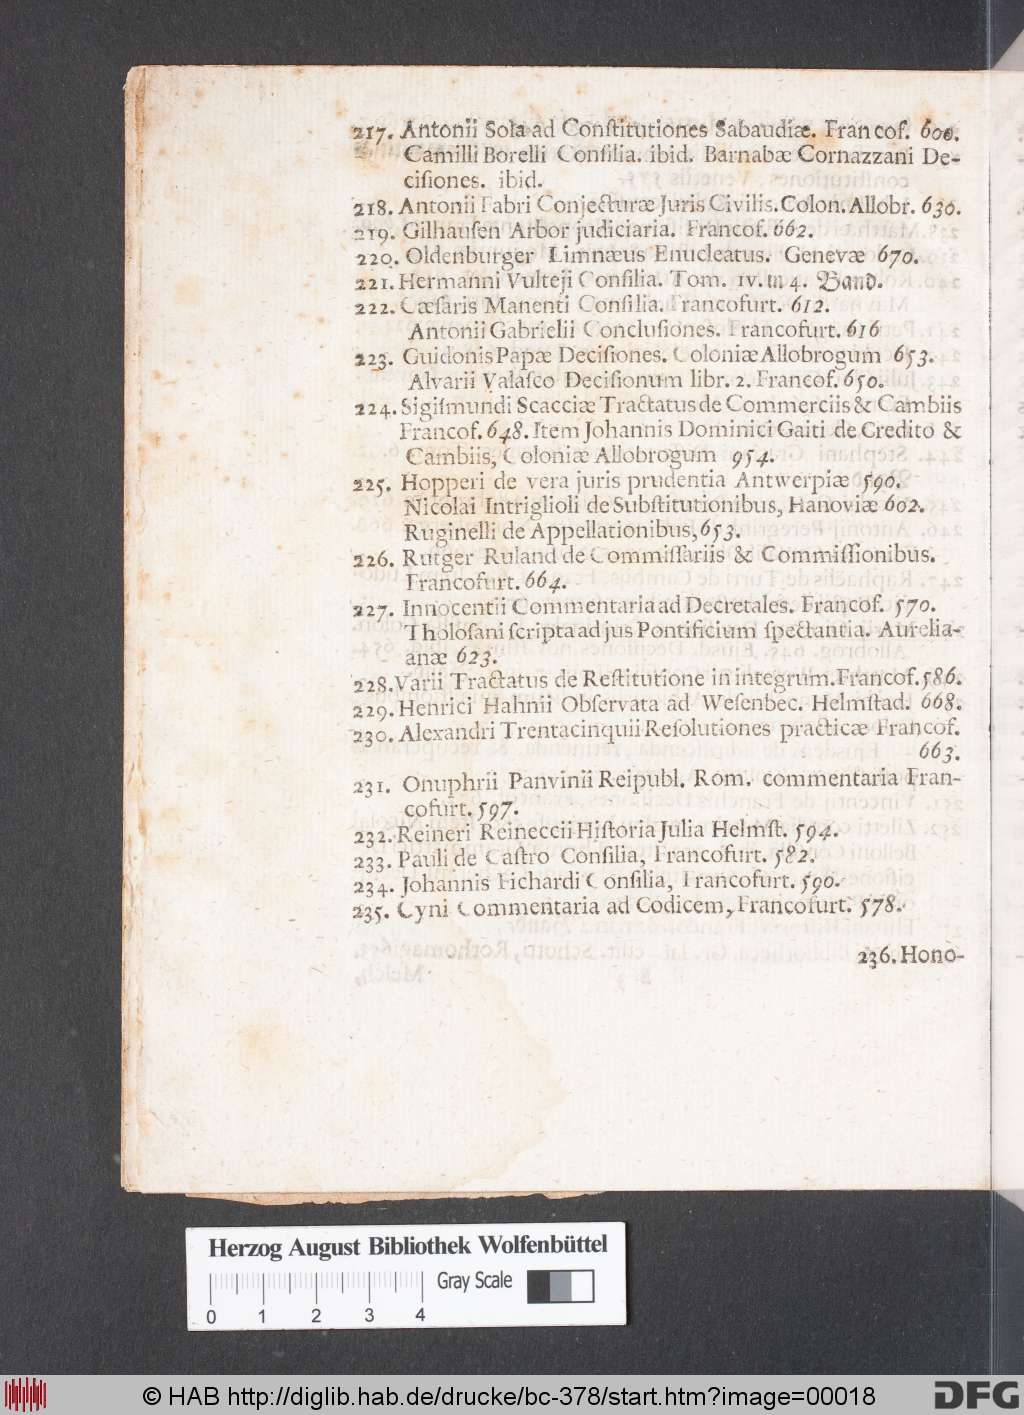 217. Antonii Sola ad Conſtitutiones Sabaudiæ. Francof. 600.
Camilli Borelli Conſilia. ibid. Barnabæ Cornazzani De-
ciſiones. ibid.
218. Antonii Fabri Conjecturæ Juris Civilis. Colon. Allobr. 630.
219. Gilhauſen Arbor judiciaria. Francof. 662.
220. Oldenburger Limnæus Enucleatus. Genevæ 670.
221. Hermanni Vulteji Conſilia. Tom. IV. in 4. Band.
222. Cæſaris Manenti Conſilia. Francofurt. 612.
Antonii Gabrielii Concluſiones. Francofurt. 616
223. Guidonis Papæ Deciſiones. Coloniæ Allobrogum 653.
Alvarii Valaſco Deciſionum libr. 2. Francof. 650.
224. Sigiſmundi Scacciæ Tractatus de Commerciis & Cambiis
Francof. 648. Item Johannis Dominici Gaiti de Credito &
Cambiis, Coloniæ Allobrogum 954.
225. Hopperi de vera juris prudentia Antwerpiæ 590.
Nicolai Intriglioli de Subſtitutionibus, Hanoviæ 602.
Ruginelli de Appellationibus, 653.
226. Rutger Ruland de Commiſſariis & Commiſſionibus.
Francofurt. 664.
227. Innocentii Commentaria ad Decretales. Francof. 570.
Tholoſani ſcripta ad jus Pontificium ſpectantia. Aurelia-
anæ 623.
228. Varii Tractatus de Reſtitutione in integrum. Francof. 586.
229. Henrici Hahnii Obſervata ad Weſenbec. Helmſtad. 668.
230. Alexandri Trentacinquii Reſolutiones practicæ Francof.
663.
231. Onuphrii Panvinii Reipubl. Rom. commentaria Fran-
cofurt. 597.
232. Reineri Reineccii Hiſtoria Julia Helmſt. 594.
233. Pauli de Caſtro Conſilia, Francofurt. 582.
234. Johannis Fichardi Conſilia, Francofurt. 590.
235. Cyni Commentaria ad Codicem, Francofurt. 578.
236. Hono-
Herzog August Bibliothek Wolfenbüttel
Gray Scale
0 1 2 3 4
© HAB http://diglib.hab.de/drucke/bc-378/start.htm?image=00018
DFG